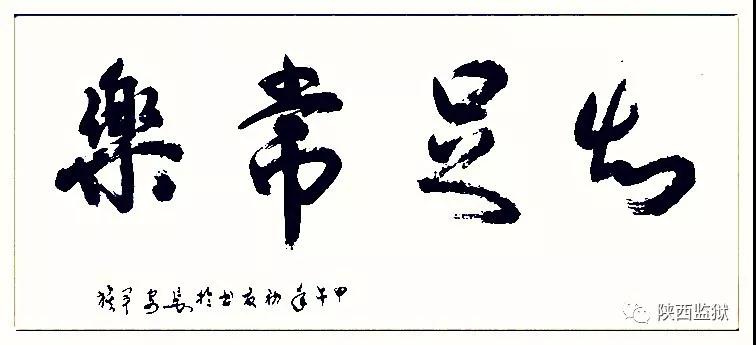 知足常樂
甲午年初夏书於長安軍
陕西监狱